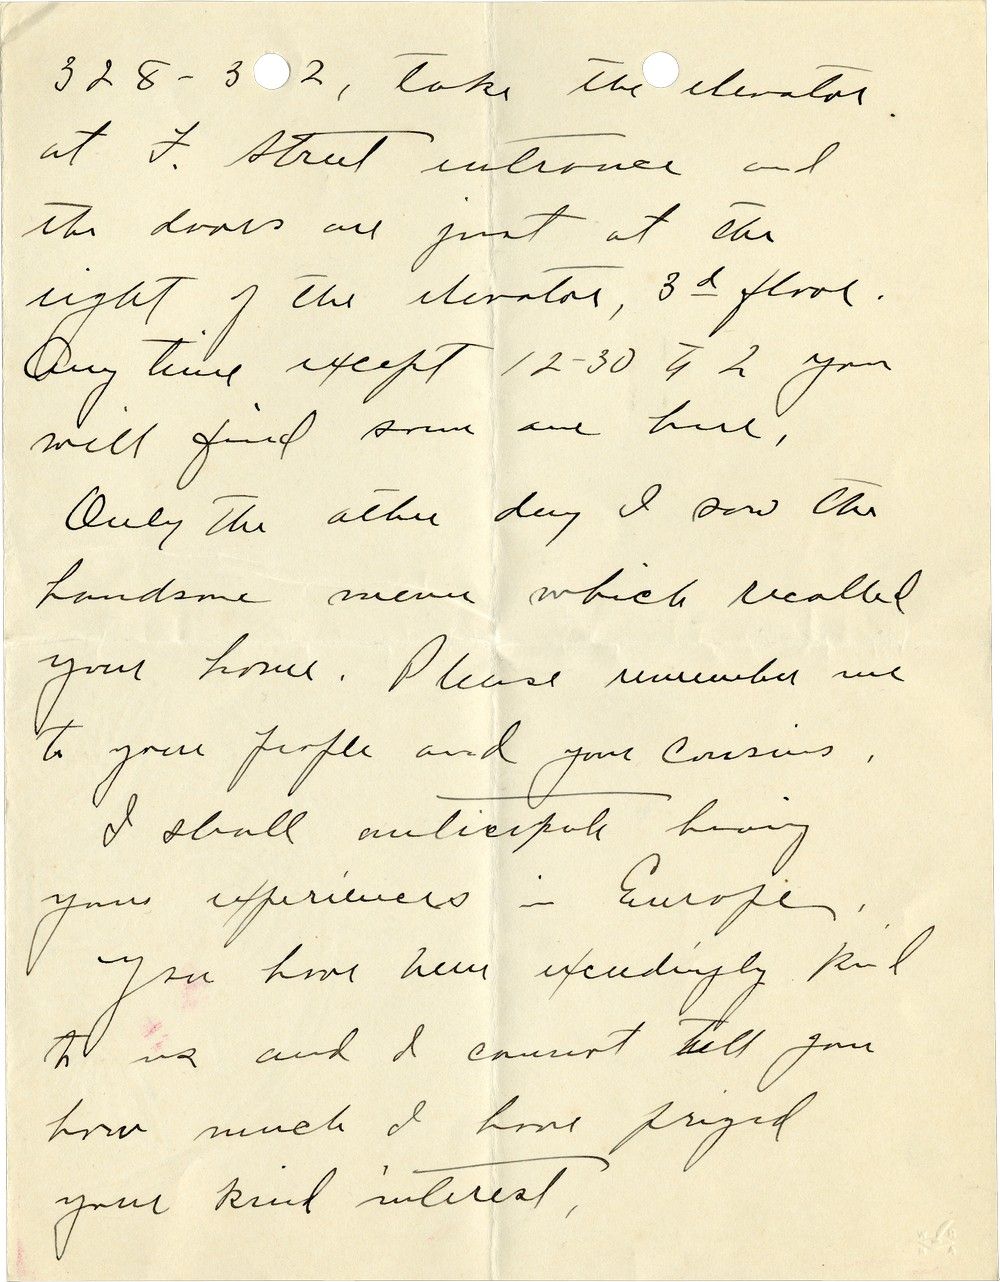 328-3 2, take the elevator.
at F. Street entrance and
the doors are just at the
right of the elevator, 3d floor.
Any time except 12-30 to 2 you
will find some one here,
Only the other day I saw the
handsome menu which recalled
your home. Please remember me
to your people and your cousins,
I shall anticipate hearing
your experiences in Europe,
You have been exceedingly kind
to us and I cannot tell you
how much I have prized
your kind interest,